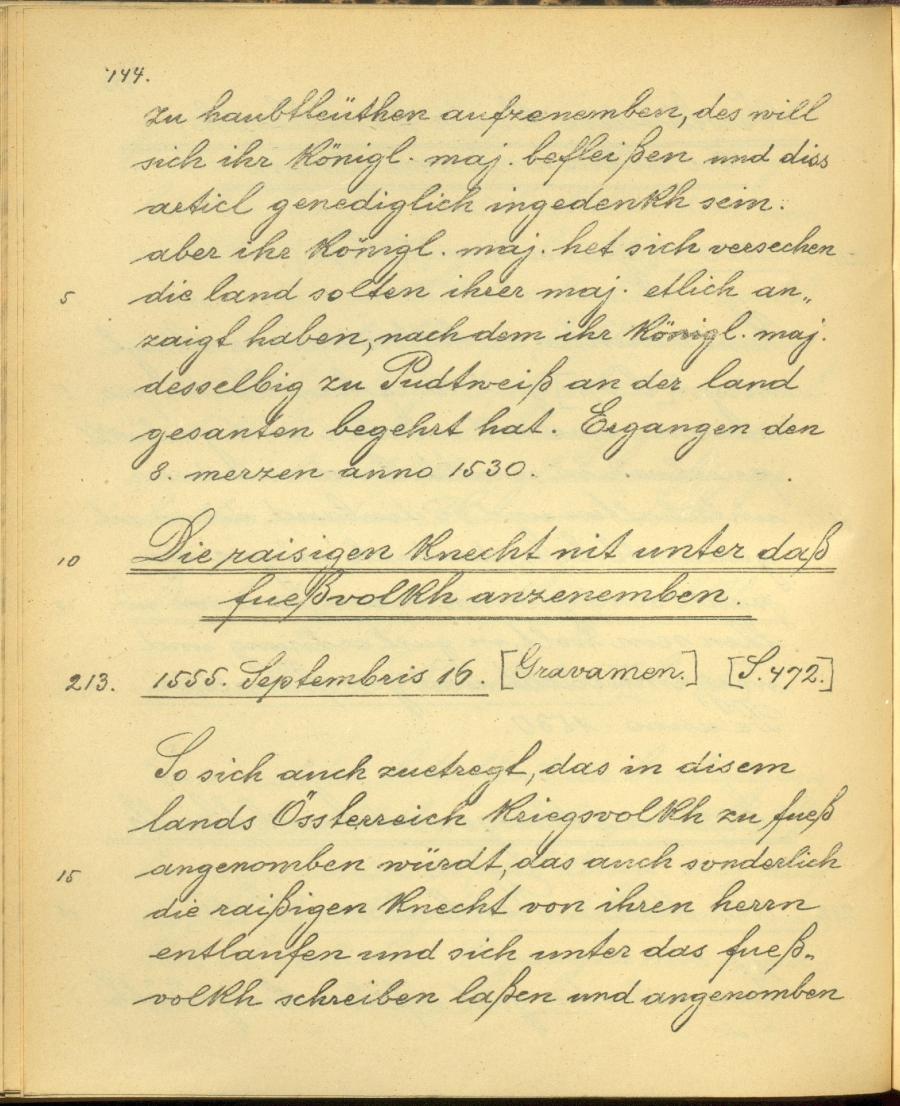 144.
zu haubtleüthen aufzenemben, des will
sich ihr königl. maj. befleißen und diss
articl genediglich ingedenkh sein.
aber ihr königl. maj. het sich versechen
5 die land solten ihrer maj. etlich an„
zaigt haben, nachdem ihr königl. maj.
desselbig zu Pudtweiß an der land
gesanten begehrt hat. Ergangen den
8. merzen anno 1530.
10 Die raisigen knecht nit unter daß
fueßvolkh anzenemben.
213. 1555. Septembris 16. [Gravamen.] [S. 472.]
So sich auch zuetregt, das in disem
lands Össterreich kriegsvolkh zu fueß
15 angenomben würdt, das auch sonderlich
die raißigen knecht von ihren herrn
entlaufen und sich unter das fueß„
volkh schreiben laßen und angenomben